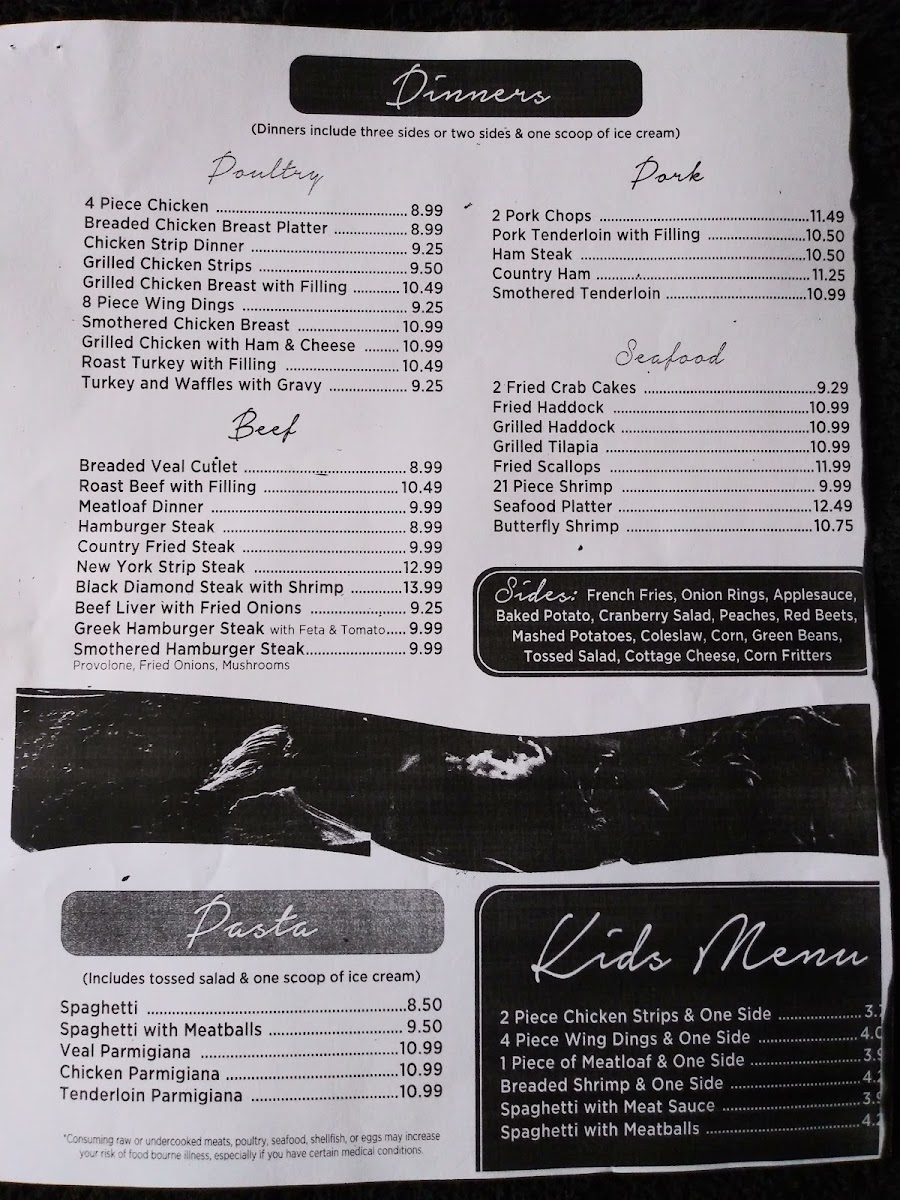 Dinners
(Dinners include three sides or two sides & one scoop of ice cream)
Poultry
4 Piece Chicken ........ 8.99
Breaded Chicken Breast Platter ........ 8.99
Chicken Strip Dinner ........ 9.25
Grilled Chicken Strips ........ 9.50
Grilled Chicken Breast with Filling ........ 10.49
8 Piece Wing Dings ........ 9.25
Smothered Chicken Breast ........ 10.99
Grilled Chicken with Ham & Cheese ........ 10.99
Roast Turkey with Filling ........ 10.49
Turkey and Waffles with Gravy ........ 9.25
Beef
Breaded Veal Cutlet ........ 8.99
Roast Beef with Filling ........ 10.49
Meatloaf Dinner ........ 9.99
Hamburger Steak ........ 8.99
Country Fried Steak ........ 9.99
New York Strip Steak ........ 12.99
Black Diamond Steak with Shrimp ........ 13.99
Beef Liver with Fried Onions ........ 9.25
Greek Hamburger Steak with Feta & Tomato..... 9.99
Smothered Hamburger Steak........ 9.99
Provolone, Fried Onions, Mushrooms
Pork
2 Pork Chops ........ 11.49
Pork Tenderloin with Filling ........ 10.50
Ham Steak ........ 10.50
Country Ham ........ 11.25
Smothered Tenderloin ........ 10.99
Seafood
2 Fried Crab Cakes ........ 9.29
Fried Haddock ........ 10.99
Grilled Haddock ........ 10.99
Grilled Tilapia ........ 10.99
Fried Scallops ........ 11.99
21 Piece Shrimp ........ 9.99
Seafood Platter ........ 12.49
Butterfly Shrimp ........ 10.75
Sides: French Fries, Onion Rings, Applesauce,
Baked Potato, Cranberry Salad, Peaches, Red Beets,
Mashed Potatoes, Coleslaw, Corn, Green Beans,
Tossed Salad, Cottage Cheese, Corn Fritters
Pasta
(Includes tossed salad & one scoop of ice cream)
Spaghetti ........ 8.50
Spaghetti with Meatballs ........ 9.50
Veal Parmigiana ........ 10.99
Chicken Parmigiana ........ 10.99
Tenderloin Parmigiana ........ 10.99
*Consuming raw or undercooked meats, poultry, seafood, shellfish, or eggs may increase
your risk of food bourne illness, especially if you have certain medical conditions.
Kids Menu
2 Piece Chicken Strips & One Side ........ 3.
4 Piece Wing Dings & One Side ........ 4.
1 Piece of Meatloaf & One Side ........ 3.
Breaded Shrimp & One Side ........ 4.
Spaghetti with Meat Sauce ........ 3.
Spaghetti with Meatballs ........ 4.